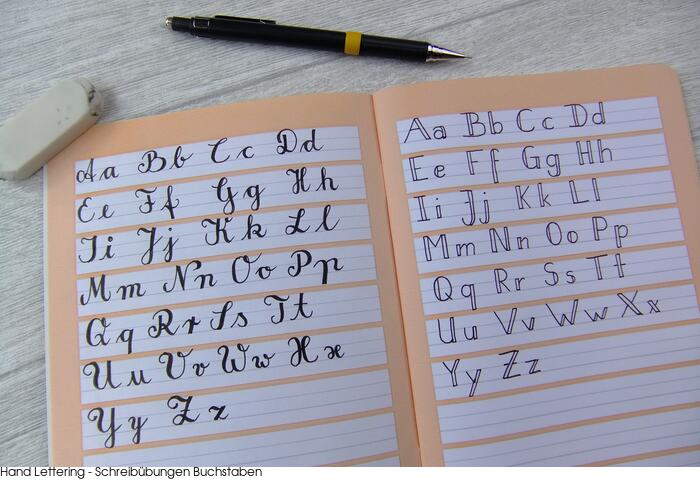 Aa Bb Cc Dd
Ee Ff Gg Hh
Ii Jj Kk Ll
Mm Nn Oo Pp
Qq Rr Ss Tt
Uu Vv Ww Xx
Yy Zz
Aa Bb Cc Dd
Ee Ff Gg Hh
Ii Jj Kk Ll
Mm Nn Oo Pp
Qq Rr Ss Tt
Uu Vv Ww Xx
Yy Zz
Hand Lettering - Schreibübungen Buchstaben